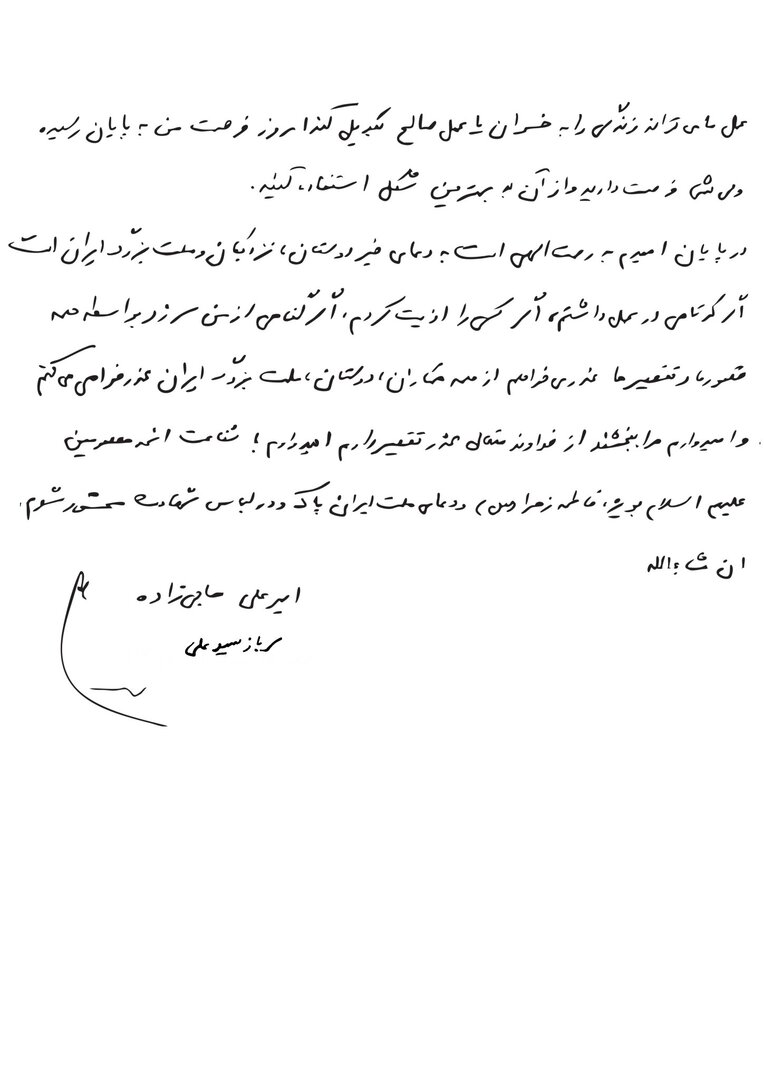 عمل ما می تواند زندگی را به خسران یا عمل صالح تبدیل کند امروز فرصت من به پایان رسیده
ولی شما فرصت دارید و از آن به بهترین شکل استفاده کنید.
در پایان امیدم به رحمت الهی است به دعای خیر دوستان، نزدیکان و ملت بزرگ ایران است
اگر کوتاهی در عمل داشتم، اگر کسی را اذیت کردم، اگر گناهی از من سر زد بواسطه همه
قصورها و تقصیرها عذر می خواهم از همه همکاران، دوستان، ملت بزرگ ایران عذر خواهی می کنم
و امیدوارم مرا ببخشند از خداوند متعال عذر تقصیر دارم امیدوارم با شفاعت ائمه معصومین
علیهم السلام بویژه فاطمه زهرا (س) و دعای ملت ایران پاک و در لباس شهادت محشور شوم.
ان شاءالله
امیر علی حاجی زاده
سرباز سید علی